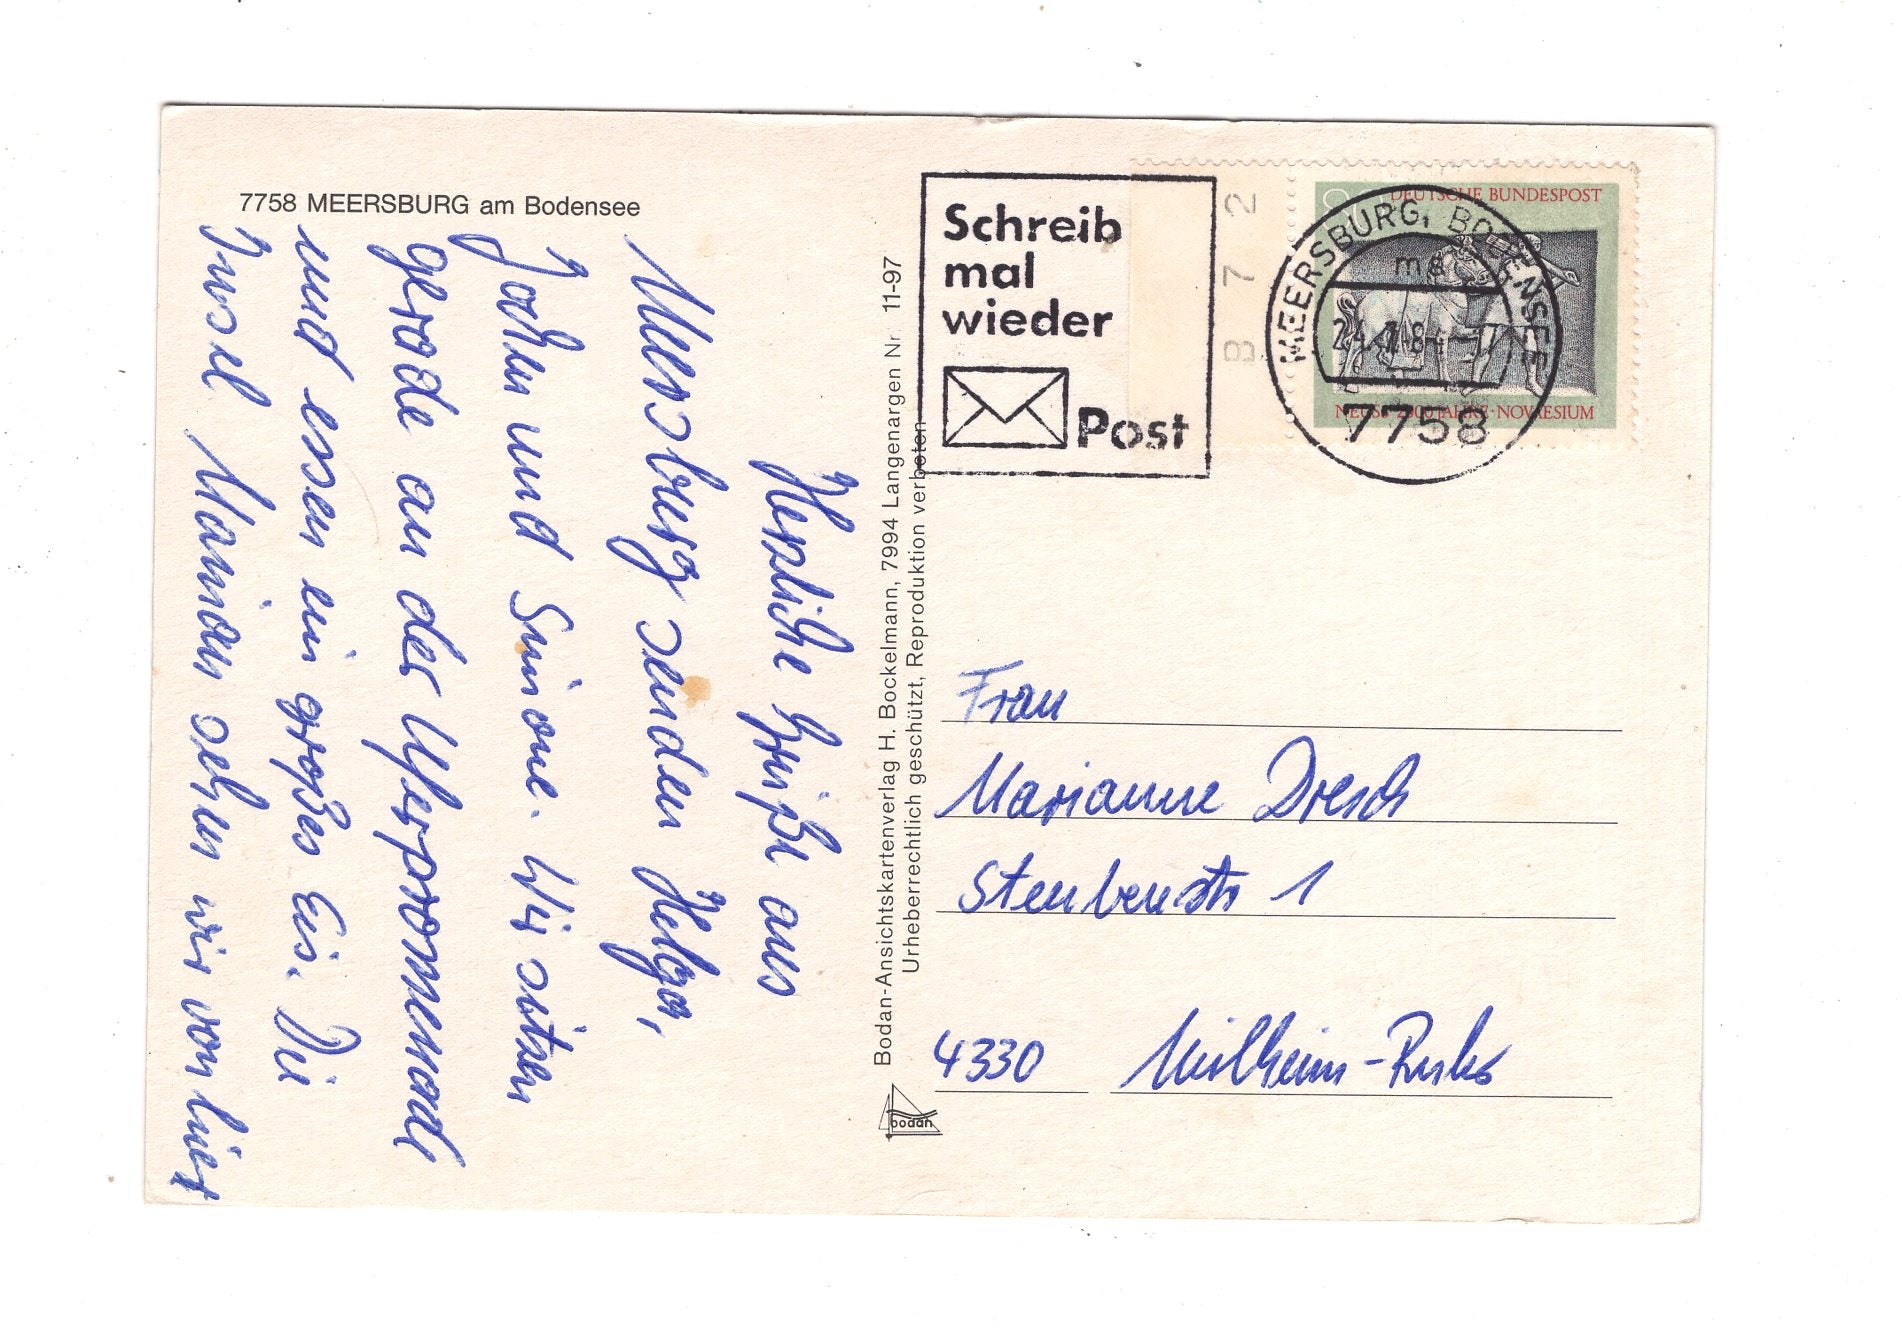 7758 MEERSBURG am Bodensee
Herzliche Grüße aus
Meersburg senden Helga,
Jochen und Simone. Wir sitzen
gerade an der Uferpromenade
und essen ein großes Eis. Die
Insel Mainau sehen wir von hier
Bodan-Ansichtskartenverlag H. Bockelmann, 7994 Langenargen Nr. 11-97
Urheberrechtlich geschützt, Reproduktion verboten
bodan
Schreib
mal
wieder
Post
872
80 DEUTSCHE BUNDESPOST
NEUSS 2000 JAHRE · NOVAESIUM
MEERSBURG, BODENSEE
7758
Frau
Marianne Dresch
Steubenstr 1
4330 Mülheim-Ruhr